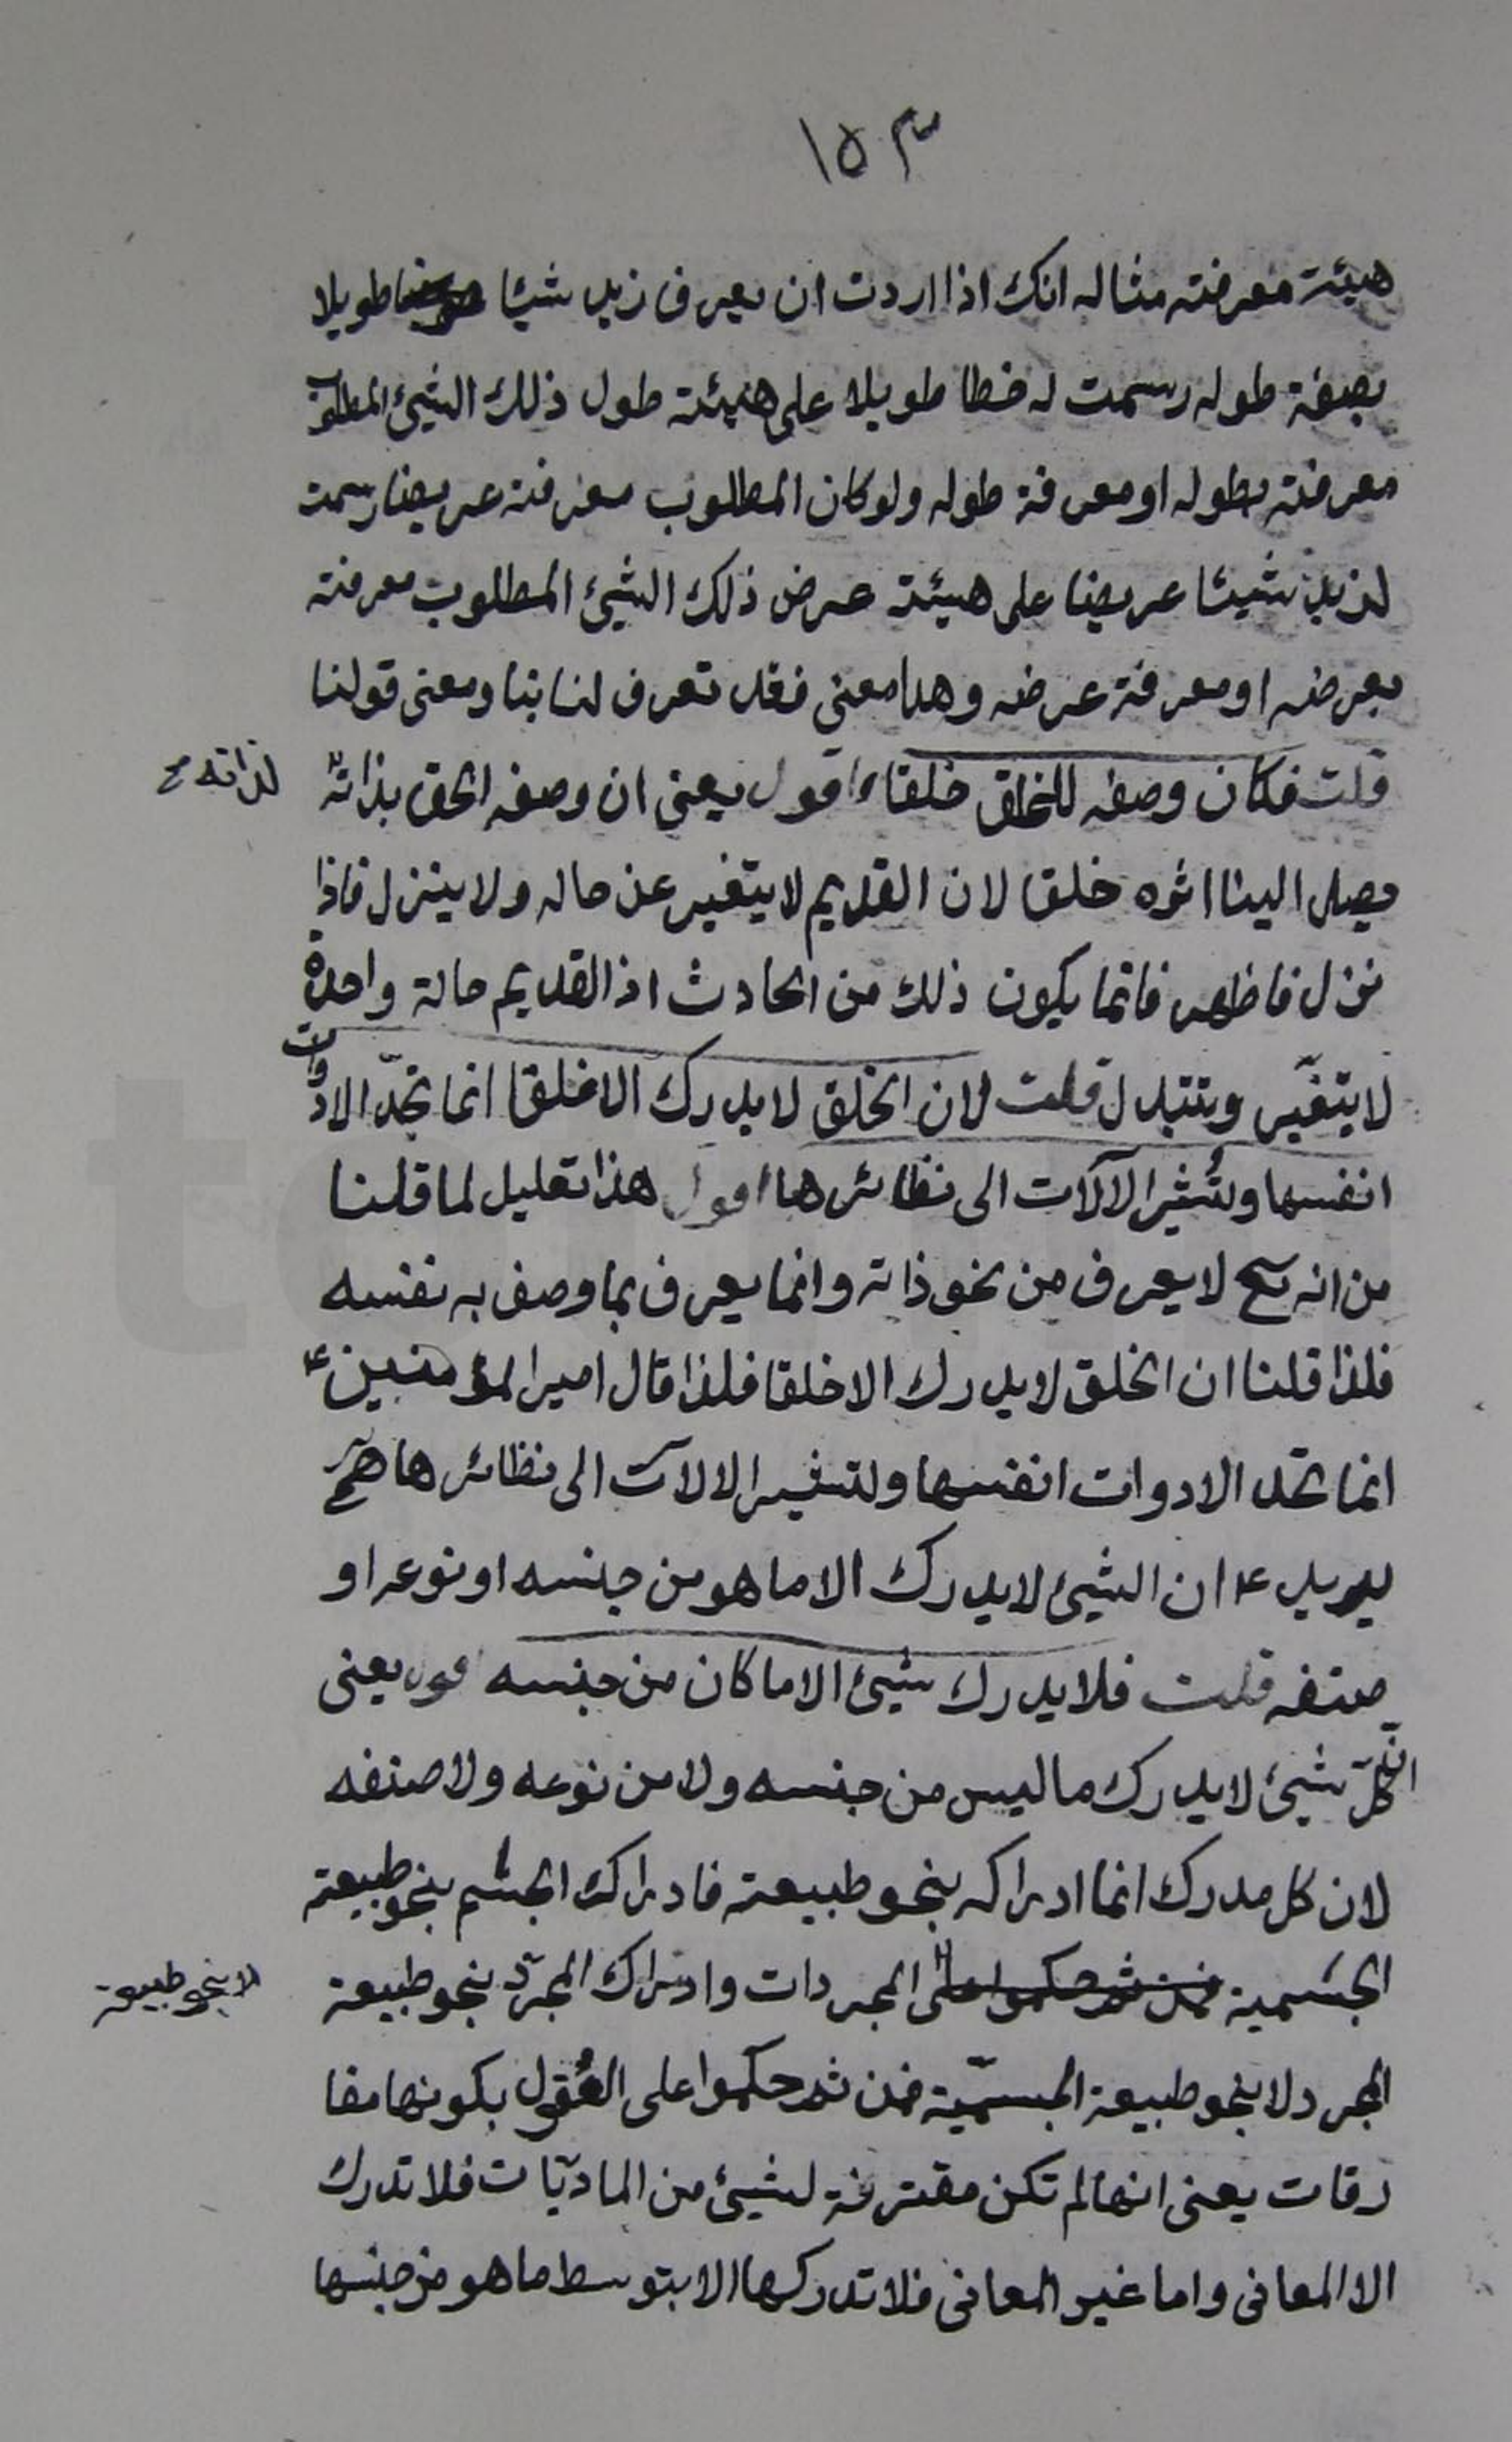 ١٥٣
هيئة معرفته مثاله انك اذا اردت ان يعرف زيد شيئا طويلا
بصفة طوله رسمت له خطا طويلا على هيئة طول ذلك الشيئ المطلوب
معرفته بطوله او معرفة طوله ولو كان المطلوب معرفته عريضا رسمت
لزيد شيئا عريضا على هيئة عرض ذلك الشيئ المطلوب معرفته
بعرضه او معرفة عرضه وهذا معنى فقد تعرف لنا بنا ومعنى قولنا
قلت فكان وصفه للخلق خلقا اقول يعنى ان وصفه الحق بذاته
لذاته
وصل الينا اثره خلقا لان القديم لا يتغير عن حاله ولا ينزل فاذا
نزل فاظهر فانما يكون ذلك من الحادث اذ القديم حالة واحدة
لا يتغيّر ويتبدل قلت لان الخلق لا يدرك الا خلقا انما تحدّ الادوات
انفسها وتُشير الآلات الى نظائرها اقول هذا تعليل لما قلنا
من انه سبح لا يعرف من نحو ذاته وانما يعرف بما وصف به نفسه
فلذا قلنا ان الخلق لا يدرك الا خلقا فلذا قال امير المؤمنين ع
انما تحد الادوات انفسها وتشير الالات الى نظائرها
يريد ع ان الشيئ لا يدرك الا ما هو من جنسه او نوعه او
صنفه قلت فلا يدرك شيئ الا ما كان من جنسه اقول يعنى
انّ كلّ شيئ لا يدرك ما ليس من جنسه ولا من نوعه ولا صنفه
لان كل مدرك انما ادراكه بنحو طبيعته فادراك الجسم بنحو طبيعته
الجسمية فمن ثم حكموا على المجردات وادراك المجرّد بنحو طبيعة
لا بنحو طبيعة
المجرد لا بنحو طبيعة الجسميّة فمن ثم حكموا على العُقول بكونها مفا
رقات يعنى انها لم تكن مقترنة لشيئ من الماديّات فلا تدرك
الا المعانى واما غير المعانى فلا تدركها الا بتوسط ما هو من جنسها